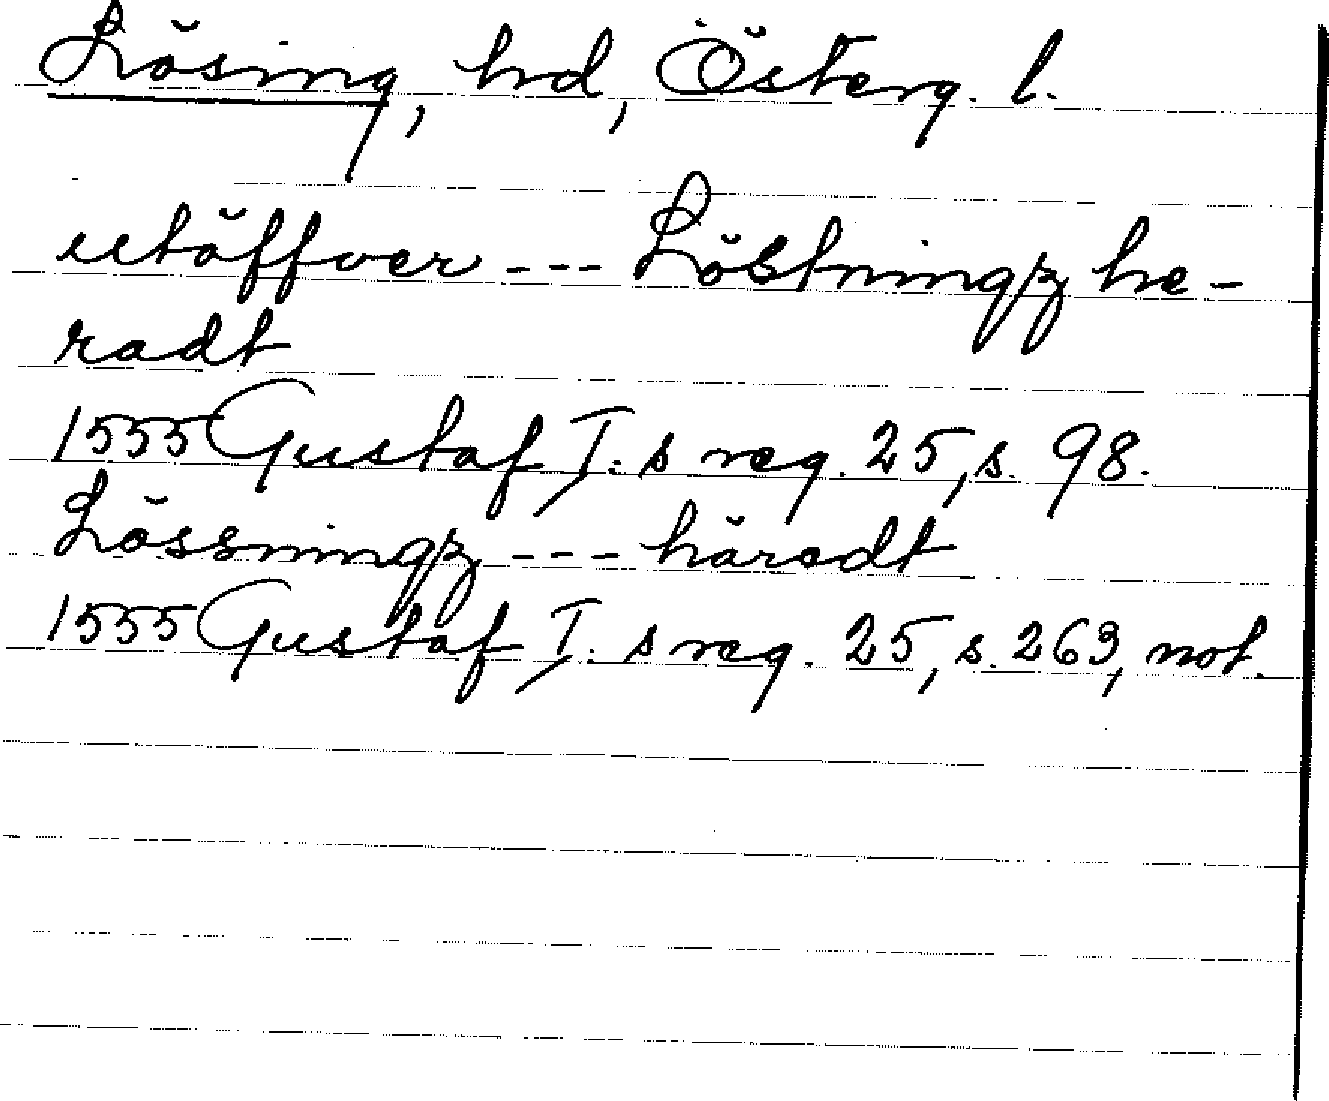 Lösing, hd, Österg. l.
utöffver --- Löstningz he-
radt
1555 Gustaf I:s reg. 25, s. 98.
Lössningz --- häredt
1555 Gustaf I:s reg. 25, s. 263, not.